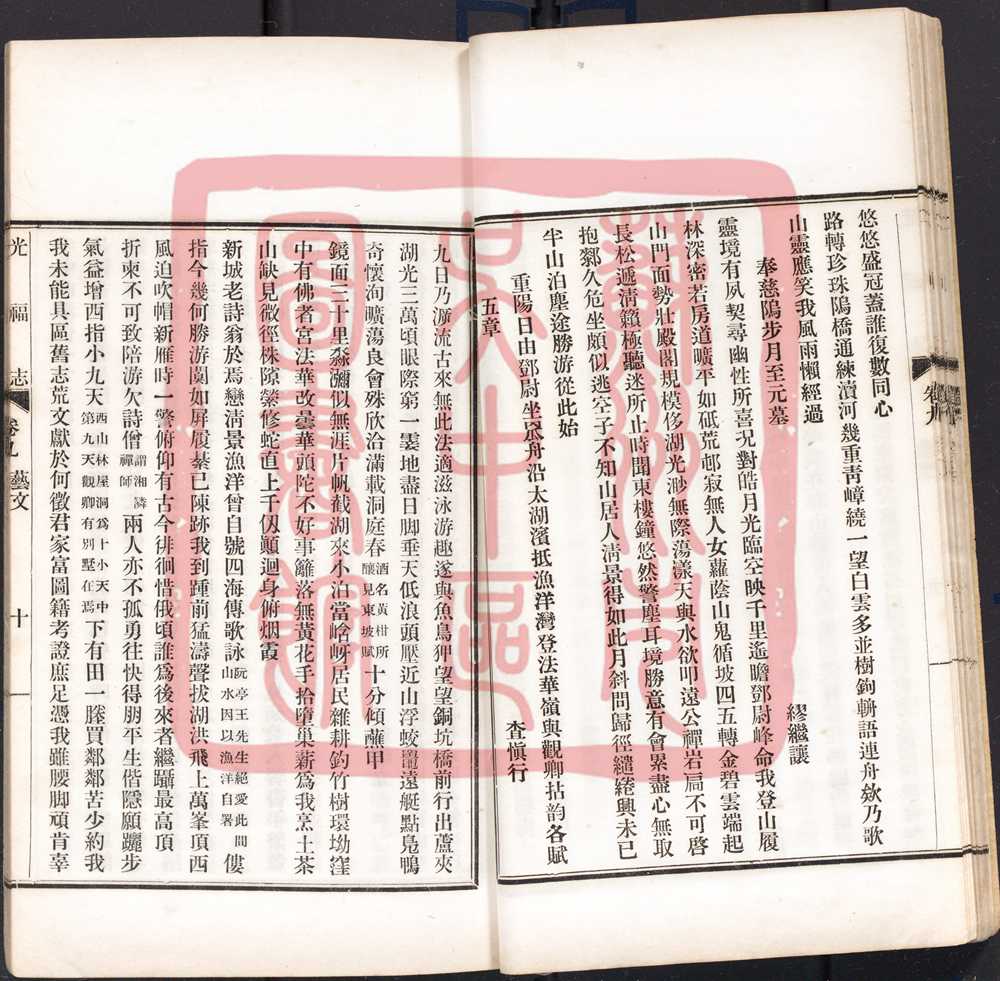 悠悠盛冠蓋誰復數同心
路轉珍珠塢橋通練瀆河幾重靑嶂繞一望白雲多並樹鉤輈語連舟欸乃歌
山靈應笑我風雨懶經過
奉慈塢步月至元墓
繆繼讓
靈境有夙契尋幽性所喜況對皓月光臨空映千里遙瞻鄧尉峰命我登山履
林深密若房道曠平如砥荒邨寂無人女蘿蔭山鬼循坡四五轉金碧雲端起
山門面勢壯殿閣規模侈湖光渺無際蕩漾天與水欲叩遠公禪岩扃不可啓
長松遞淸籟極聽迷所止時聞東樓鐘悠然警塵耳境勝意有會累盡心無取
抱鄹久危坐頗似逃空子不知山居人淸景得如此月斜問歸徑繾綣興未已
半山泊塵途勝游從此始
重陽日由鄧尉坐舟沿太湖濱抵漁洋灣登法華嶺與觀卿拈韵各賦
五章
查愼行
九日乃灝流古來無此法適滋泳游趣遂與魚鳥狎望望銅坑橋前行出蘆夾
湖光三萬頃眼際窮一霎地盡日脚垂天低浪頭壓近山浮蛟鼉遠艇點鳧鴨
奇懷洶曠蕩良會殊欣洽滿載洞庭春酒名黃柑所釀見東坡賦十分傾蘸甲
鏡面三十里淼瀰似無涯片帆截湖來小泊當峆岈居民雜耕釣竹樹環坳窪
中有佛者宮法華改曇華頭陀不好事籬落無黃花手拾墮巢薪爲我烹土茶
山缺見微徑株隙縈修蛇直上千仭巔迴身俯烟霞
新城老詩翁於焉戀淸景漁洋曾自號四海傳歌詠阮亭王先生絕愛此間山水因以漁洋自署僂
指今幾何勝游闃如屏屐綦已陳跡我到踵前猛濤聲拔湖洪飛上萬峯頂西
風迫吹帽新雁時一警俯仰有古今徘徊惜俄頃誰爲後來者繼躡最高頂
折柬不可致陪游欠詩僧謂湘隣禪師兩人亦不孤勇往快得朋平生偕隱願躧步
氣益增西指小九天西山林屋洞爲十小天中第九天觀卿有別墅在焉下有田一塍買鄰鄰苦少約我
我未能具區舊志荒文獻於何徵君家富圖籍考證庶足憑我雖腰脚頑肯辜
光福志
卷九
藝文
十
卷九